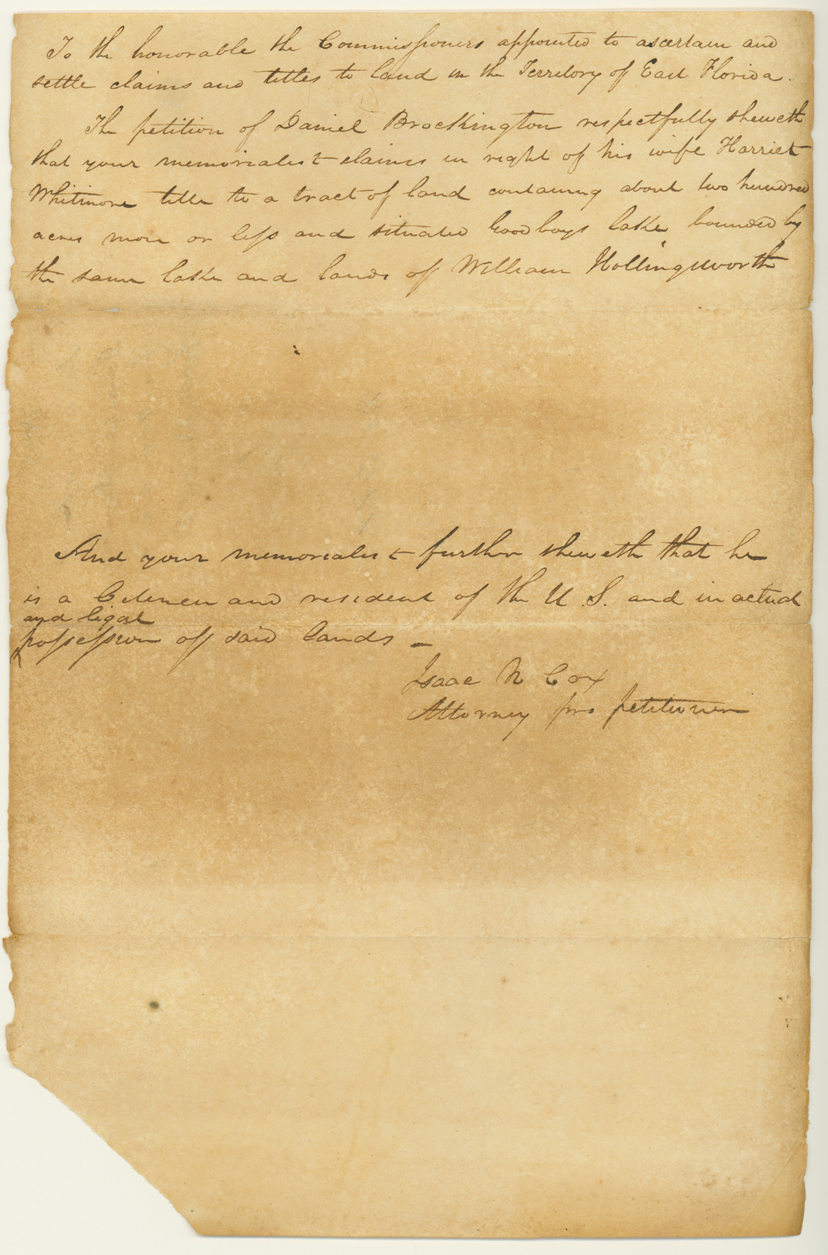 To the honorable the Commissioners appointed to ascertain and
settle claims and titles to land in the Territory of East Florida.
The petition of Daniel Brockington respectfully sheweth
that your memorialist claims in right of his wife Harriet
Whitmore title to a tract of land containing about two hundred
acres more or less and situated Goodboys lake bounded by
the same lake and lands of William Hollingsworth
And your memorialist further sheweth that he
is a Citizen and resident of the U.S. and in actual
and legal
possession off said lands —
Isaac N Cox
Attorney pro petitioner